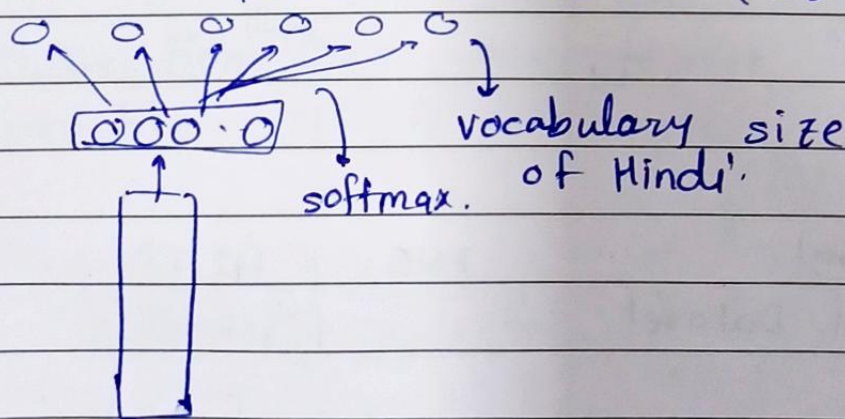 vocabulary size
of Hindi.
softmax.